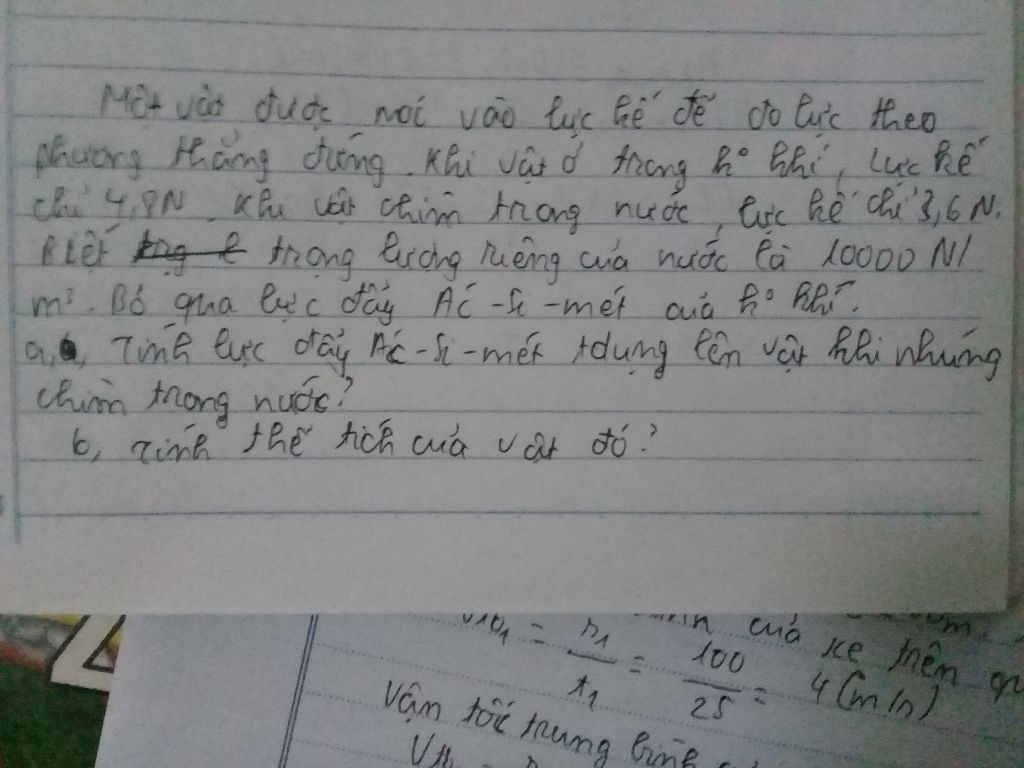 Một vào được mói vào lực kế để đo lực theo
phương thẳng đứng. Khi vật ở trong ho khí, lực kế
chỉ 4,8N. Khi vật chìm trong nước, lực kế chỉ 3,6N.
Biết trọng lượng riêng của nước là 10000 N/
m³. Bỏ qua lực đẩy Ác-Si-mét của ho khí.
a, Tính lực đẩy Ác-Si-mét tdụng lên vật khi nhúng
chìm trong nước?
b, Tính thể tích của vật đó?
của xe trên
= s1/t1 = 100/25 = 4(m/s)
Vận tốc trung bình